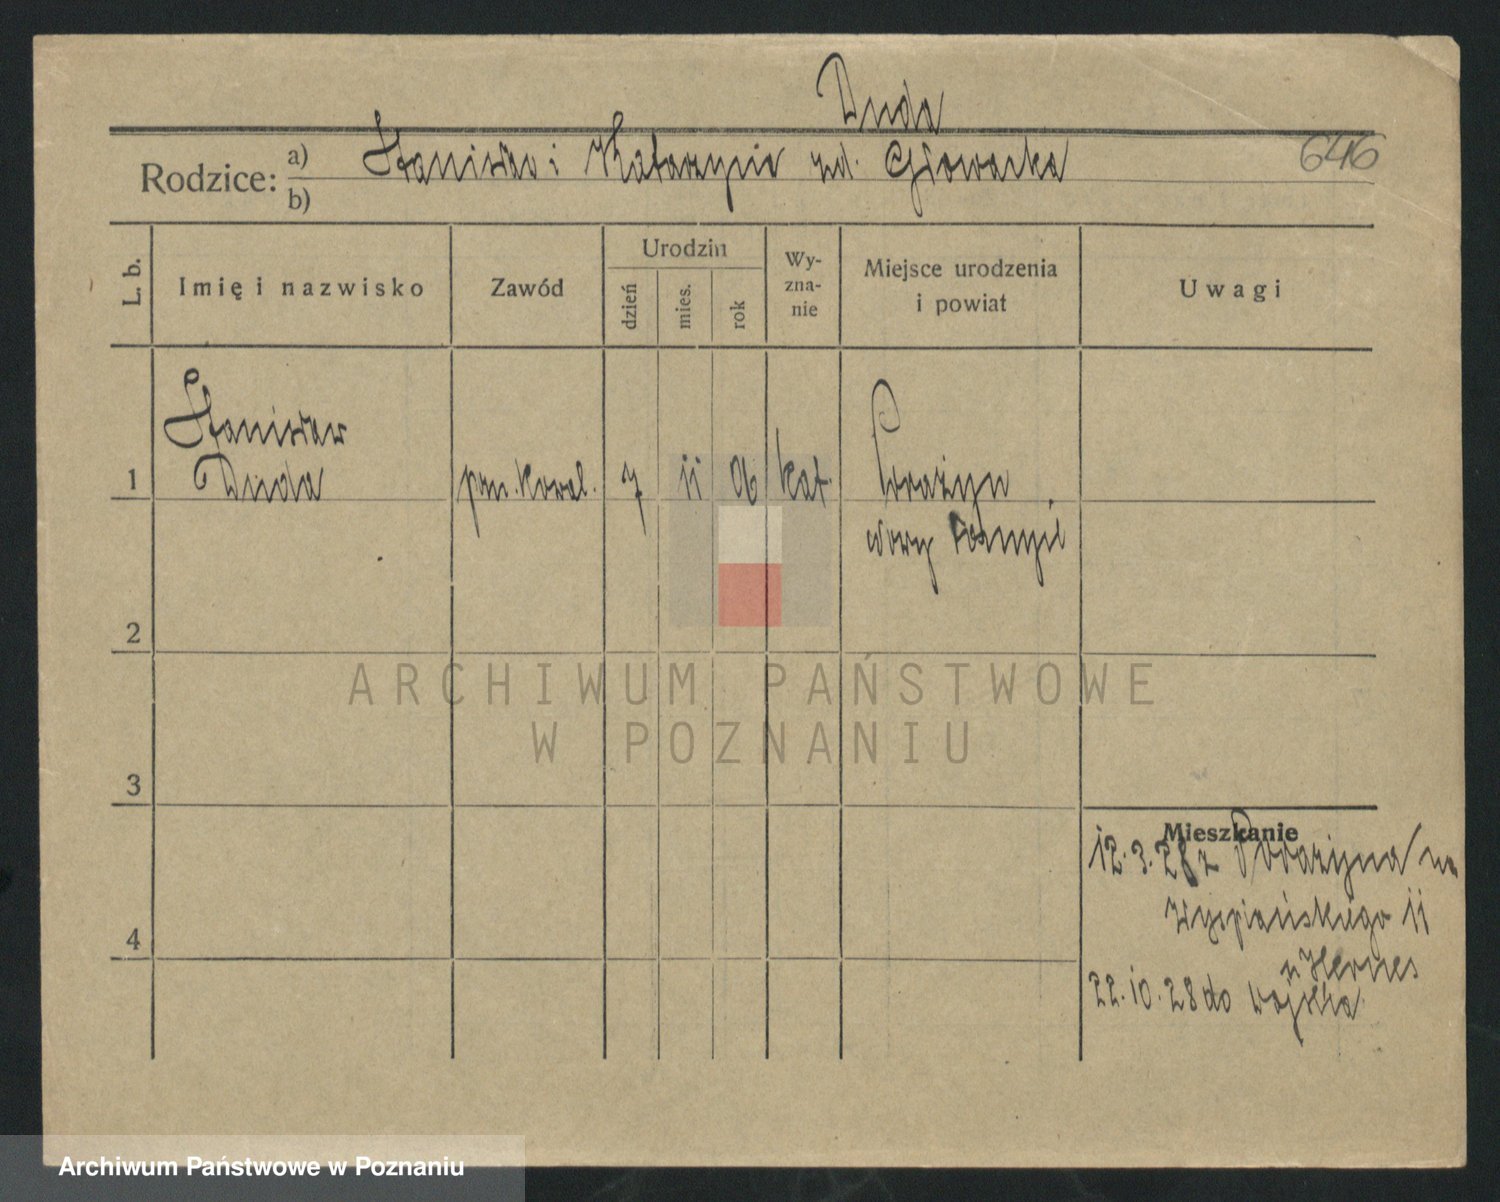 Duda
Rodzice: a) Stanisław i Katarzyna zd. Głowacka
646
b)
L. b.
Imię i nazwisko
Zawód
Urodzin
dzień
mies.
rok
Wy-
zna-
nie
Miejsce urodzenia
i powiat
Uwagi
Stanisław
1 Duda pom. kowal. 7 11 06 kat.
nowy Tomyśl
2
ARCHIWUM PAŃSTWOWE
W POZNANIU
3
Mieszkanie
12.3.28 z na
4 Wyspiańskiego 11
22.10.28 do wojska
Archiwum Państwowe w Poznaniu